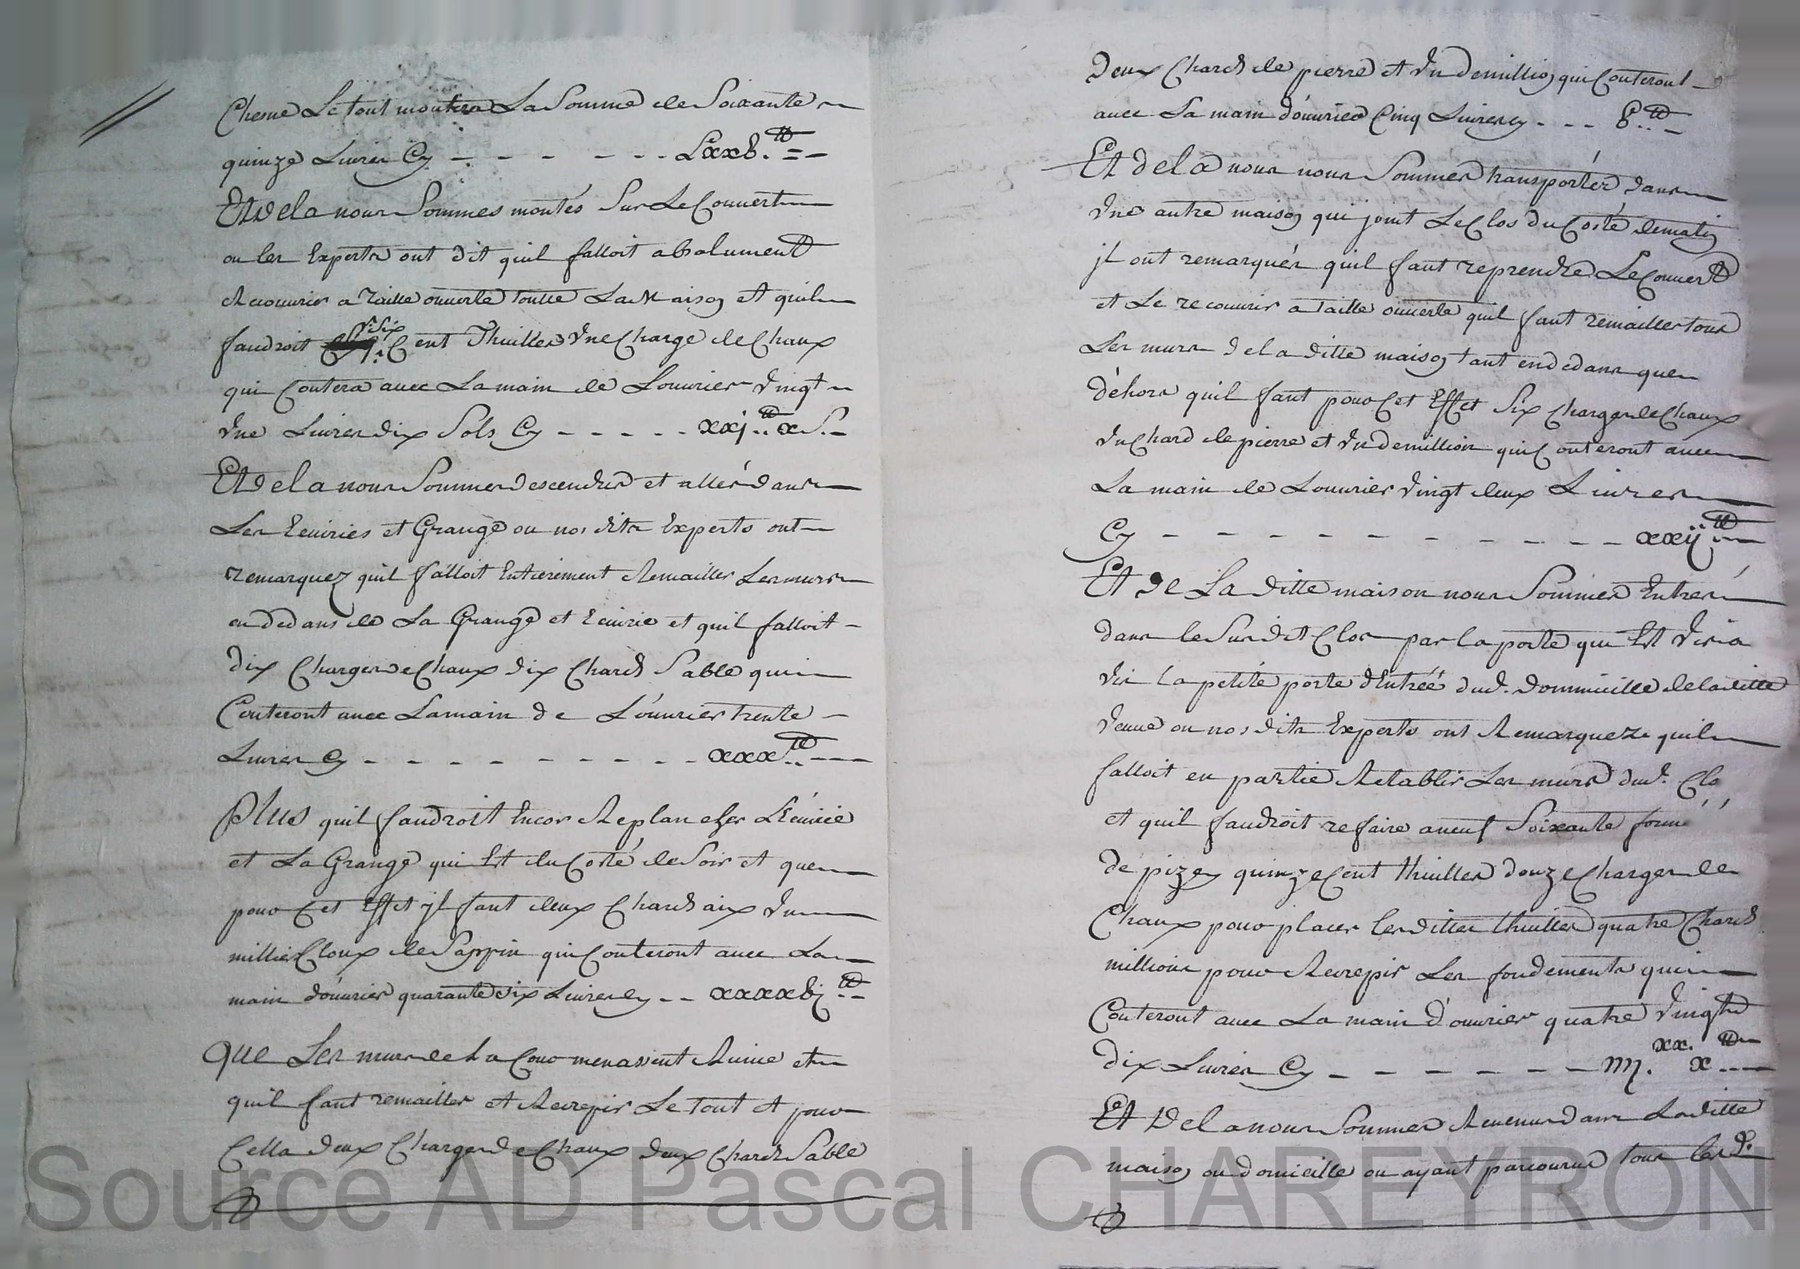 Chesne Le tout montera La Somme de Soixante
quinze Livres Cy - - - - - - LxxB.tt
Et de la nous Sommes montés Sur Le Couvert
ou les Experts ont dit quil falloit absolument
Recouvrir a Taille ouverte toutte La Maison et quil
faudroit Six Cent Thuilles Vne Charge de Chaux
qui Coutera avec La main de Louvrier Vingt
Vne Livres dix Sols Cy - - - - - xxj.tt x S.
Et de la nous Sommes descendus et allés dans
Les Ecuiries et Grange ou nos dits Experts ont
remarquez quil falloit Entierement Remailler Les murs
en dedans de La Grange et Ecuirie et quil falloit
dix Charges de Chaux dix Chards Sable qui
Couteront avec La main de L'ouvrier trente
Livres Cy - - - - - - - - - xxx.tt
Plus quil faudroit Encor Replancher L'Ecuirie
et La Grange qui Est du Costé de Soir et que
pour Cet Effet jl faut deux Chards aix Vn
millier Cloux de Sappin qui Couteront avec La
main d'ouvrier quarante Six Livres Cy - - xxxxbj.tt
Que Les murs de La Cour menassent Ruine et
quil faut remailler et Recrepir Le tout et pour
Cella deux Charges de Chaux deux Chards Sable
Deux Chards de pierre et Vn demillion qui Couteront
avec La main d'ouvrier Cinq Livres Cy - - - b.tt
Et de la nous nous Sommes transportés dans
Vne autre maison qui joint Le Clos du Costé de matin
jl ont remarqués quil faut reprendre Le Couvert
et Le recouvrir a Taille ouverte quil faut remailler tous
Les murs de la ditte maison tant en dedans que
déhors quil faut pour Cet Effet Six Charges de Chaux
Vn Chard de pierre et Vn demillion qui Couteront avec
La main de Louvrier Vingt deux Livres
Cy - - - - - - - - - - - xxij.tt
Et de La ditte maison nous Sommes Entrés
dans le Susdit Clos par la porte qui Est Vis a
Vis La petite porte d'Entrée dud. dommicille de la ditte
Veuve ou nos dits Experts ont Remarquez quil
falloit en partie Retablir Les murs dud. Clo
et quil faudroit refaire a neuf Soixante forme
de pizey quinze Cent thuilles douze Charges de
Chaux pour placer les dittes thuilles quatre Chards
millions pour Recrepir Les fondements qui
Couteront avec La main d'ouvrier quatre Vingt
dix Livres Cy - - - - - - - - iiij.xx x tt
Et De la nous Sommes Revenus dans La ditte
maison ou domicille ou ayant parcourus tous les d.
Source AD Pascal CHAREYRON